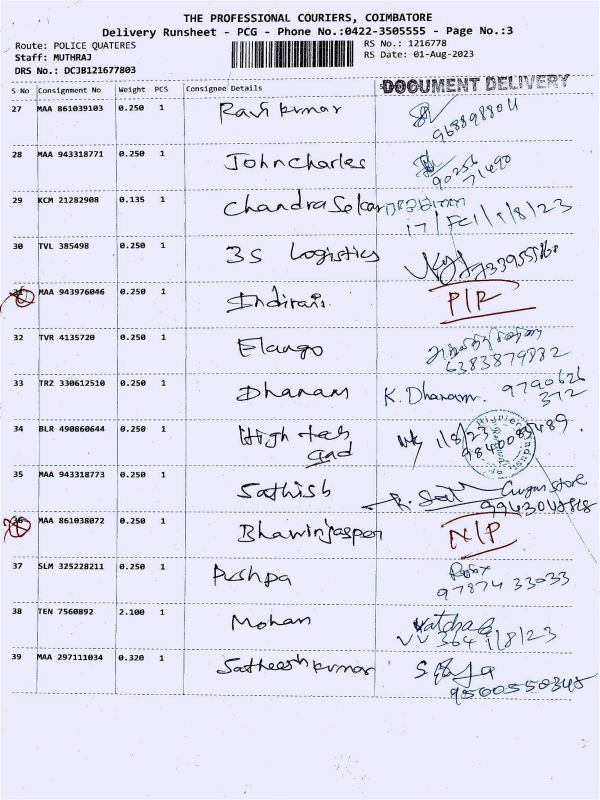 THE PROFESSIONAL COURIERS, COIMBATORE
Delivery Runsheet - PCG - Phone No.:0422-3505555 - Page No.:3
Route: POLICE QUATERES
RS No.: 1216778
Staff: MUTHRAJ
RS Date: 01-Aug-2023
DRS No.: DCJB121677803
DOCUMENT DELIVERY
S No Consignment No Weight PCS Consignee Details
27 MAA 861039103 0.250 1 Ravi kumar
9688988011
28 MAA 943318771 0.250 1 John charles
90256
71490
29 KCM 21282908 0.135 1 Chandra Sekar
17/FC1/1/8/23
30 TVL 385498 0.250 1 3S Logistics
31 MAA 943976046 0.250 1 Indirani P/R
32 TVR 4135720 0.250 1 Elango
6383879882
33 TRZ 330612510 0.250 1 Dhanam K. Dhanam. 9790626
372
34 BLR 490860644 0.250 1 High tech 1/8/23
and 9840085489.
35 MAA 943318773 0.250 1 Sathish
store
36 MAA 861038072 0.250 1 Bhawinjasper N/P
37 SLM 325228211 0.250 1 Pushpa
97874 33033
38 TEN 7560892 2.100 1 Mohan
VV 364 1/8/23
39 MAA 297111034 0.320 1 Satheesh kumar